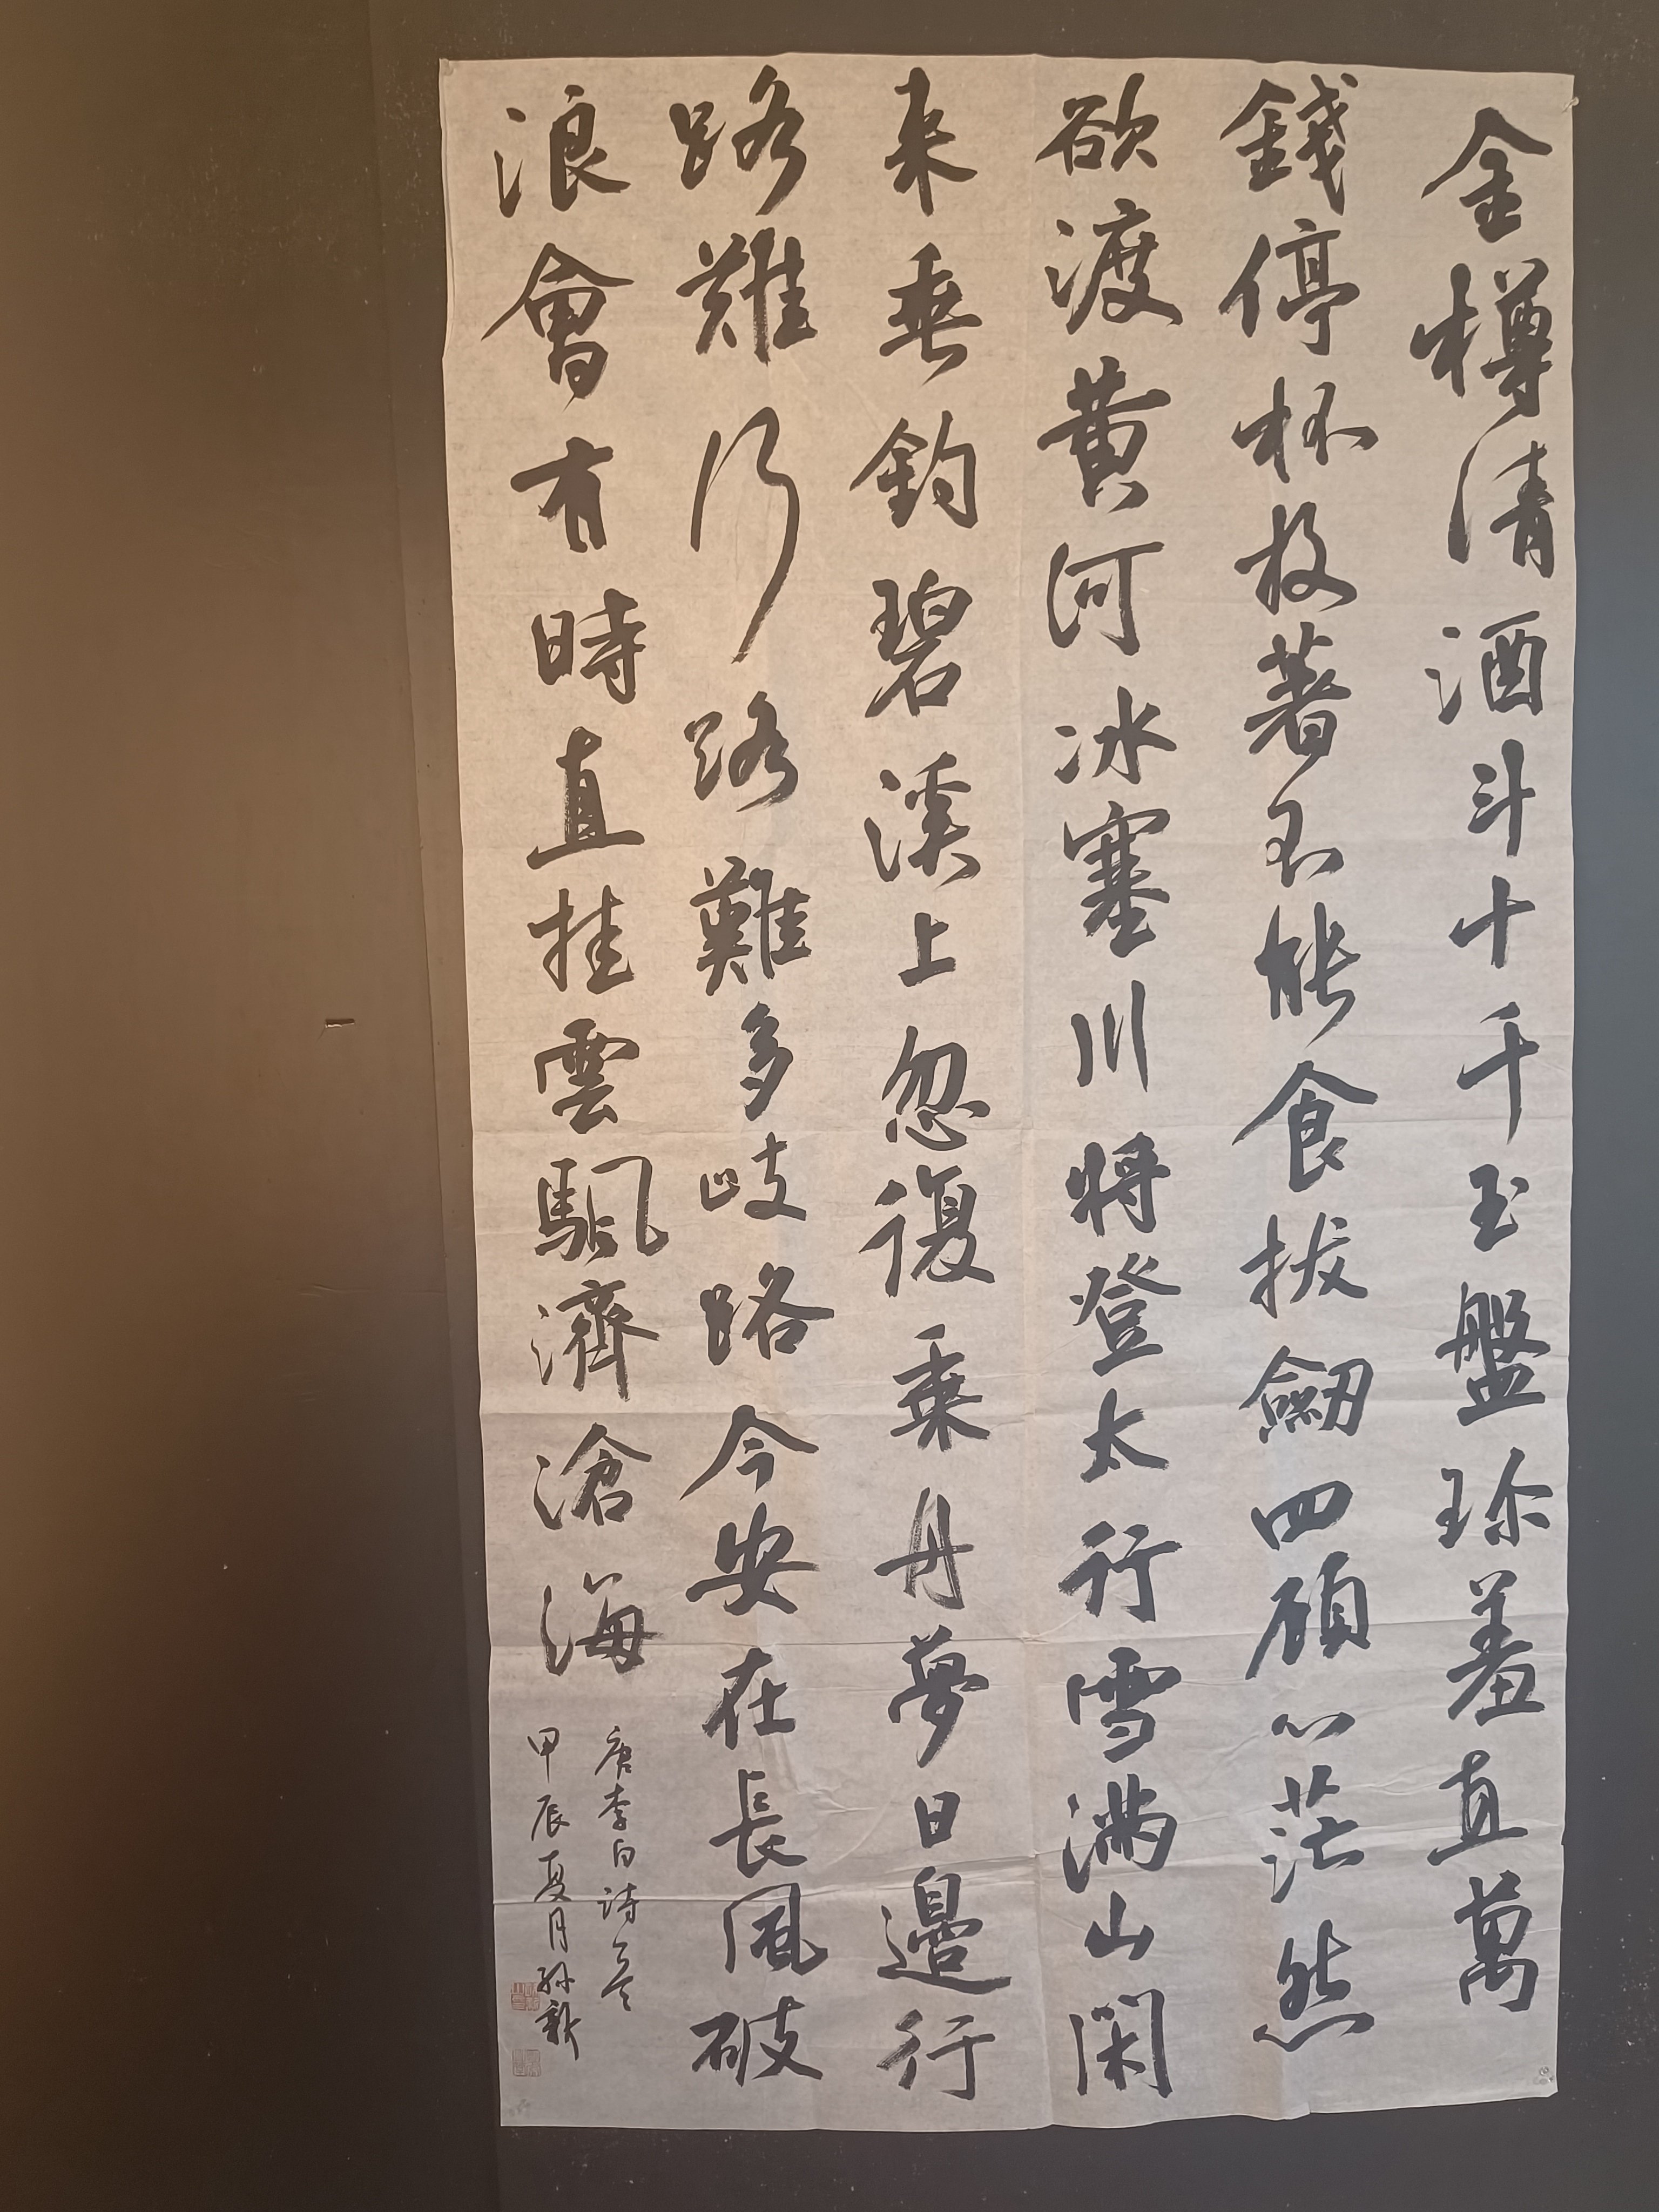 金樽清酒斗十千玉盤珎羞直萬
錢停杯投著不能食拔劒四顧心茫然
欲渡黄河冰塞川将登太行雪滿山閑
来垂釣碧溪上忽復乗丹夢日邊行
路難行路難多岐路今安在長風破
浪會有時直挂雲颿濟滄海
唐李白詩一首
甲辰夏月孫新